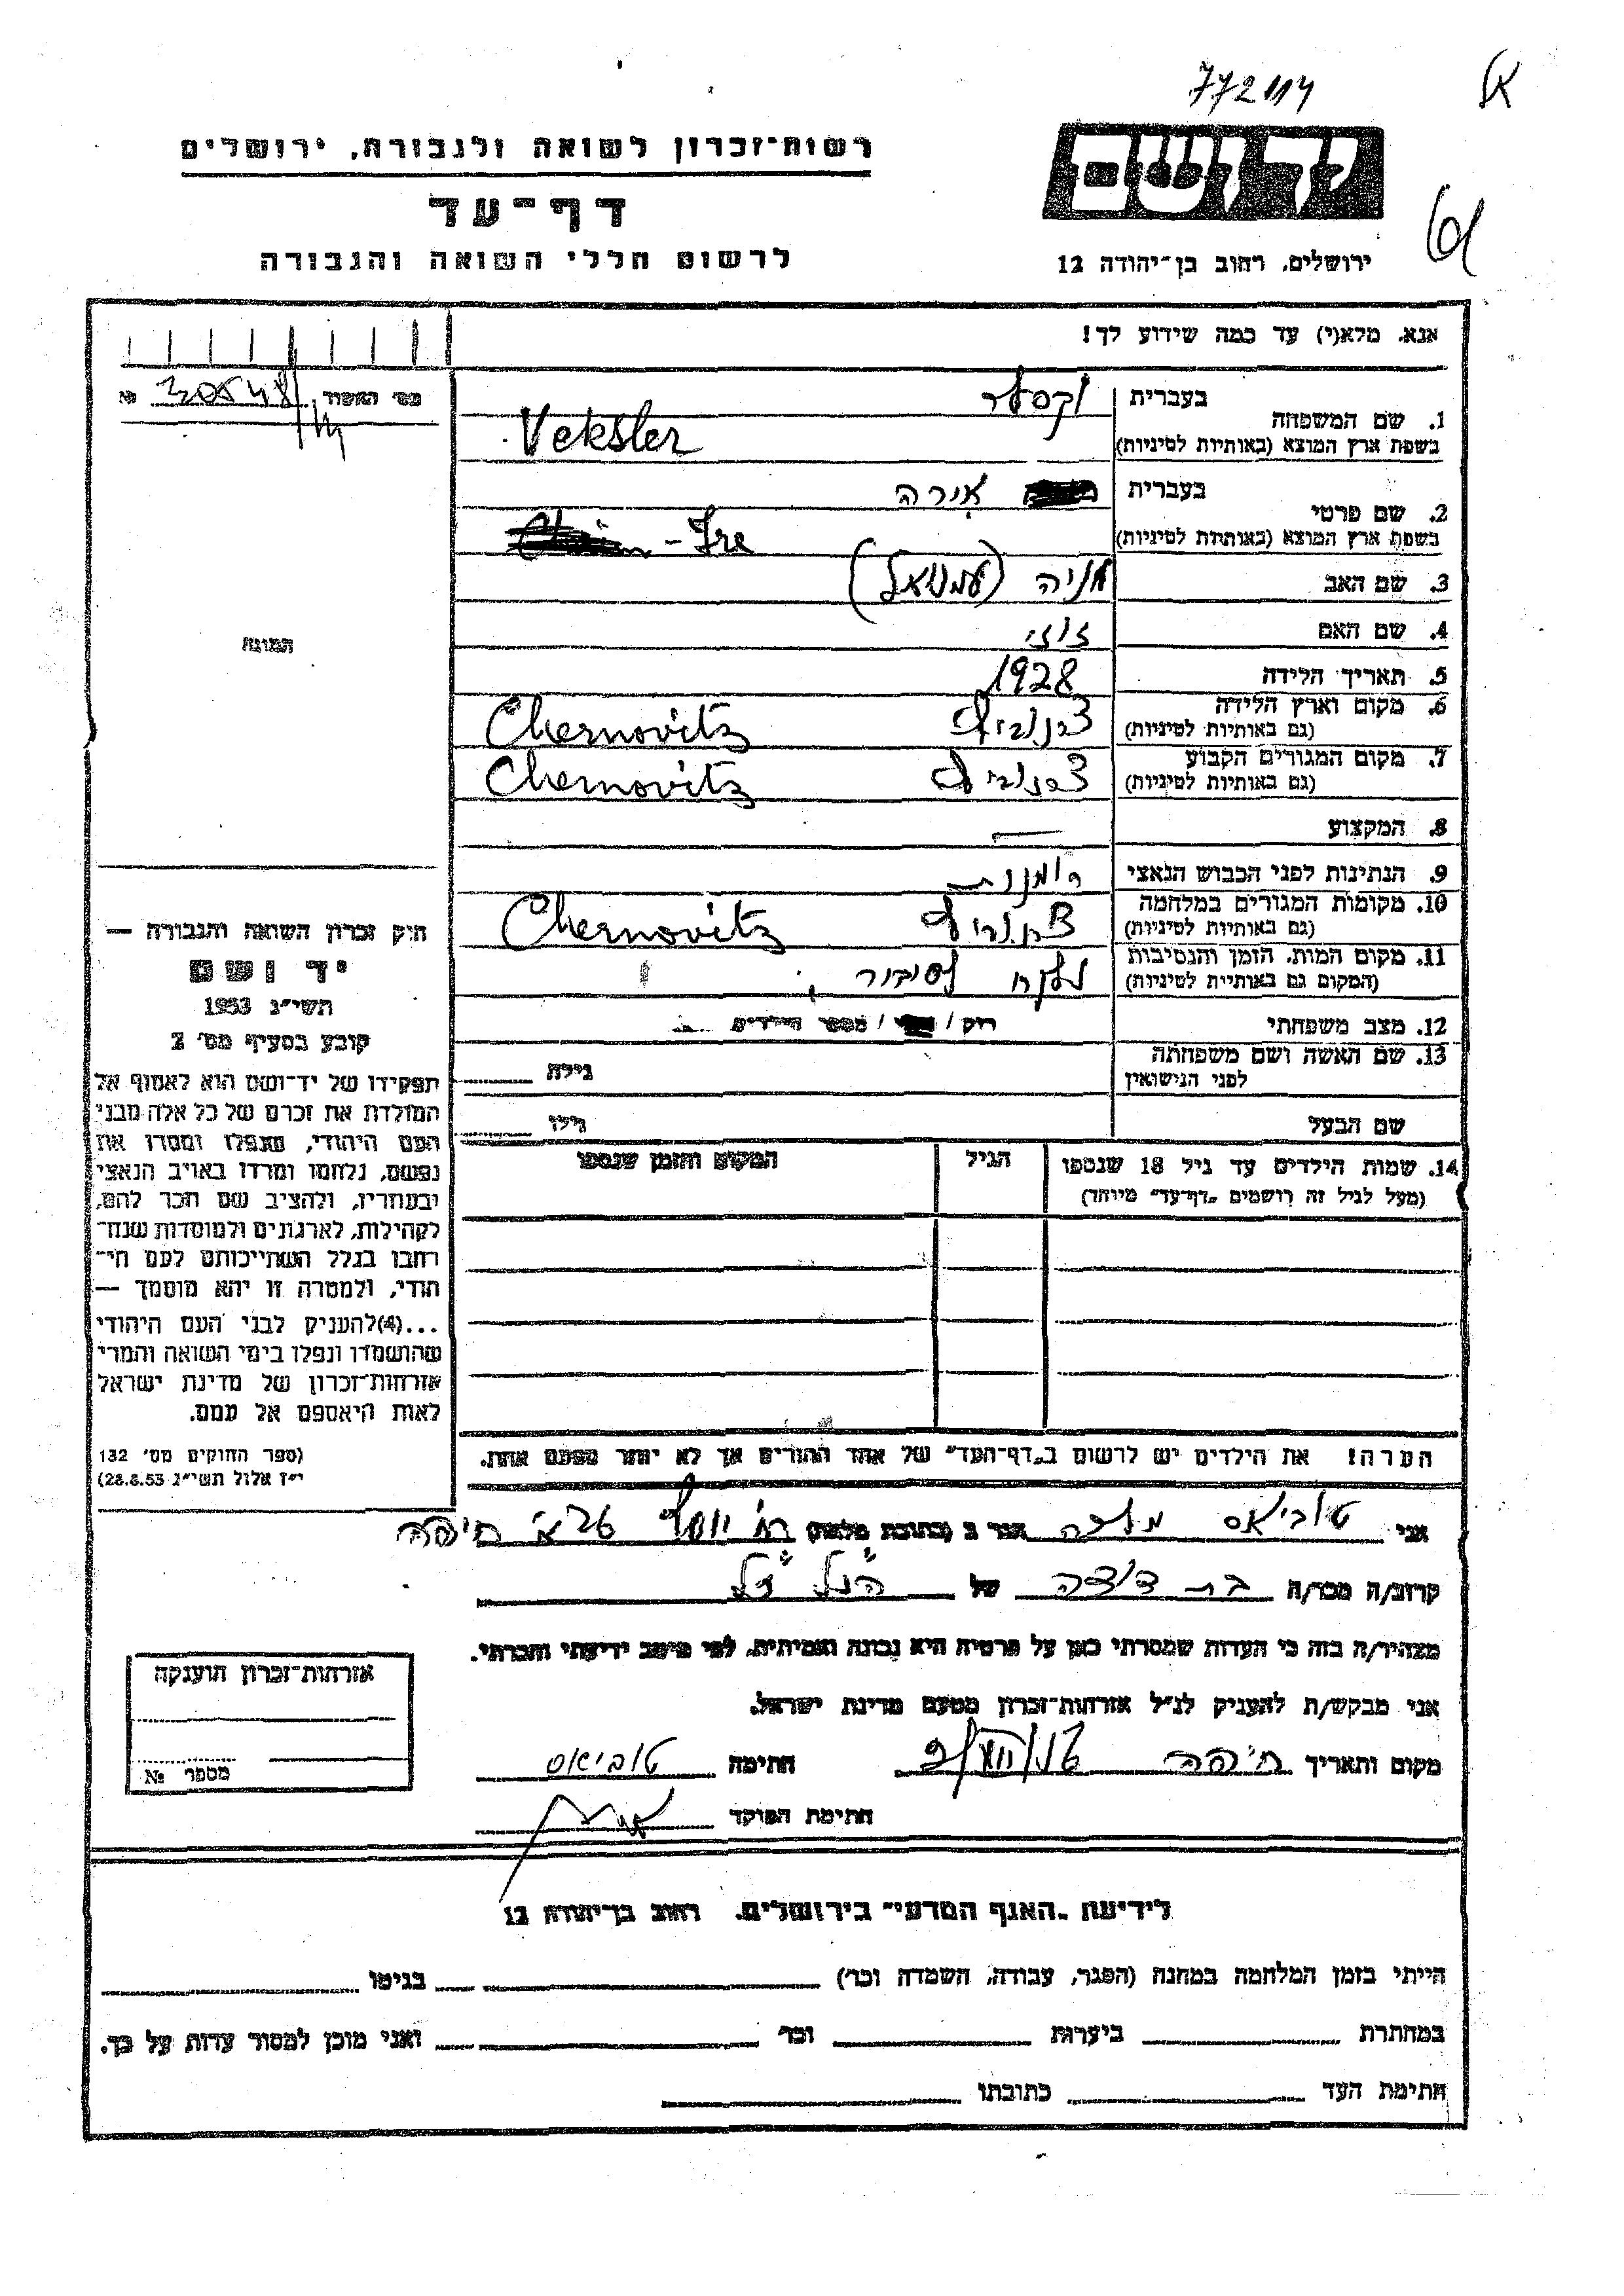 772114
רשות-זכרון לשואה ולגבורה, ירושלים
דף-עד
לרשום חללי השואה והגבורה
ידושם
ירושלים, רחוב בן-יהודה 12
אנא, מלא(י) עד כמה שידוע לך!
מס' האשור № 30548
1. שם המשפחה בעברית וקסלר
בשפת ארץ המוצא (באותיות לטיניות) Veksler
2. שם פרטי בעברית אירה
בשפת ארץ המוצא (באותיות לטיניות) - Ire
3. שם האב מניה (עמנואל)
4. שם האם זוזי
5. תאריך הלידה 1928
6. מקום וארץ הלידה צרנוביץ Chernovitz
(גם באותיות לטיניות)
7. מקום המגורים הקבוע צרנוביץ Chernovitz
(גם באותיות לטיניות)
8. המקצוע —
9. הנתינות לפני הכבוש הנאצי רומנית
10. מקומות המגורים במלחמה צרנוביץ Chernovitz
(גם באותיות לטיניות)
11. מקום המות, הזמן והנסיבות נלקח לסיביר
(המקום גם באותיות לטיניות)
12. מצב משפחתי רוק / מספר הילדים
13. שם האשה ושם משפחתה גילה
לפני הנישואין
שם הבעל גילו
14. שמות הילדים עד גיל 18 שנספו הגיל המקום והזמן שנספו
(מעל לגיל זה רושמים "דף-עד" מיוחד)
הערה! את הילדים יש לרשום ב"דף-העד" של אחד ההורים אך לא יותר מפעם אחת.
התמונה
חוק זכרון השואה והגבורה —
יד ושם
תשי"ג 1953
קובע בסעיף מס' 2
תפקידו של יד-ושם הוא לאסוף אל
המולדת את זכרם של כל אלה מבני
העם היהודי, שנפלו ומסרו את
נפשם, נלחמו ומרדו באויב הנאצי
ובעוזריו, ולהציב שם וזכר להם,
לקהילות, לארגונים ולמוסדות שנח-
רבו בגלל השתייכותם לעם הי-
הודי, ולמטרה זו יהא מוסמך —
...(4) להעניק לבני העם היהודי
שהושמדו ונפלו בימי השואה והמרי
אזרחות-זכרון של מדינת ישראל
לאות היאספם אל עמם.
(ספר החוקים מס' 132
י"ז אלול תשי"ג 28.8.53)
אני טוביאס מלכה הגר ב (כתובת מלאה) רח' יוסף חיפה
קרוב/ה מכר/ה בת דודה של הנ"ל ז"ל
מצהיר/ה בזה כי העדות שמסרתי כאן על פרטיה היא נכונה ואמיתית, לפי מיטב ידיעתי והכרתי.
אני מבקש/ת להעניק לנ"ל אזרחות-זכרון מטעם מדינת ישראל.
מקום ותאריך חיפה חתימה טוביאס
חתימת הפוקד
אזרחות-זכרון הוענקה
מספר №
לידיעת "האגף המדעי" בירושלים, רחוב בן-יהודה 12
הייתי בזמן המלחמה במחנה (הסגר, עבודה, השמדה וכו') בגיטו
במחתרת ביערות וכו' ואני מוכן למסור עדות על כך.
חתימת העד כתובתו